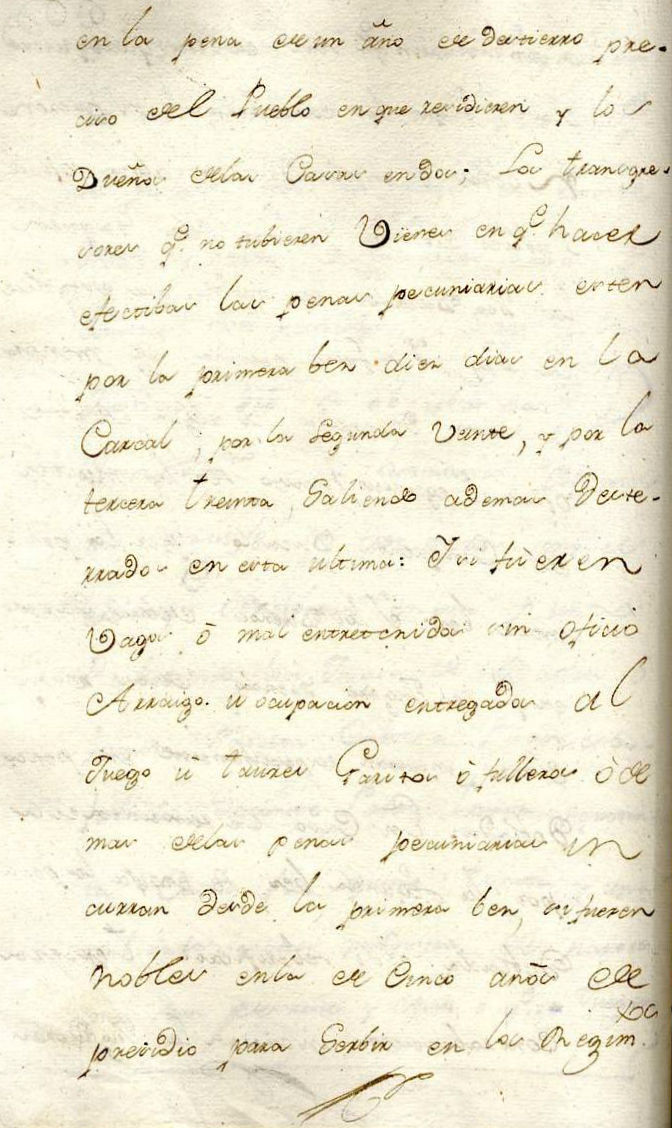 en la pena de un año de destierro pre-
ciso del Pueblo en que residieren y los
Dueños de las Casas en dos; Los transgre-
sores q.e no tubieren Vienes en q.e hacer
efectibas las penas pecuniarias esten
por la primera bez diez dias en la
Carcel, por la Segunda Veinte, y por la
tercera treinta, Saliendo ademas Deste-
rrados en esta ultima: Y si fueren
Vagos ò mal entretenidos sin oficio
Arraigo ù ocupacion entregados al
Juego ù taures Garitos ò fulleros ò de
mas de las penas pecuniarias in
curran desde la primera bez, si fueren
nobles en la de Cinco años de
presidio para Serbir en los Regim.tos